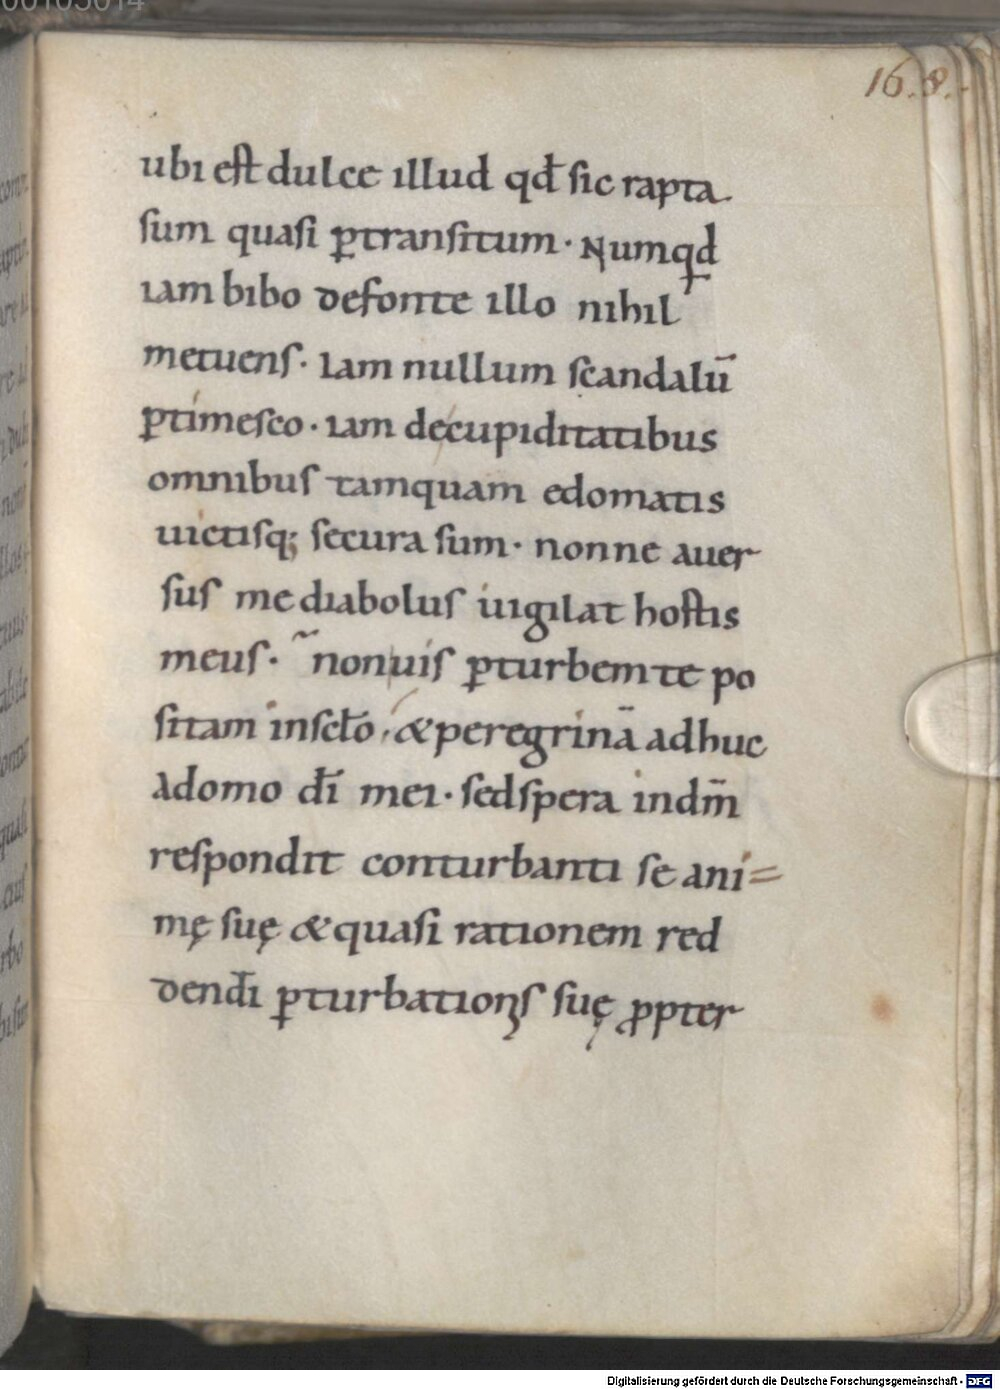 00105014
168.
ubi est dulce illud qđ sic rapta
sum quasi ꝑtransitum· Numqđ
iam bibo defonte illo nihil
metuens· Iam nullum scandalū
ꝑtimesco· iam decupiditatibus
omnibus tamquam edomatis
uictisq; secura sum· nonne auer
sus me diabolus uigilat hostis
meus· nonuis ꝑturbemte po
sitam insclo, &peregrinā adhuc
Adomo dī mei· sedspera indm̄
respondit conturbanti se ani=
mę suę &quasi rationem red
dendi ꝑturbationis suę ꝓpter
Digitalisierung gefördert durch die Deutsche Forschungsgemeinschaft - DFG